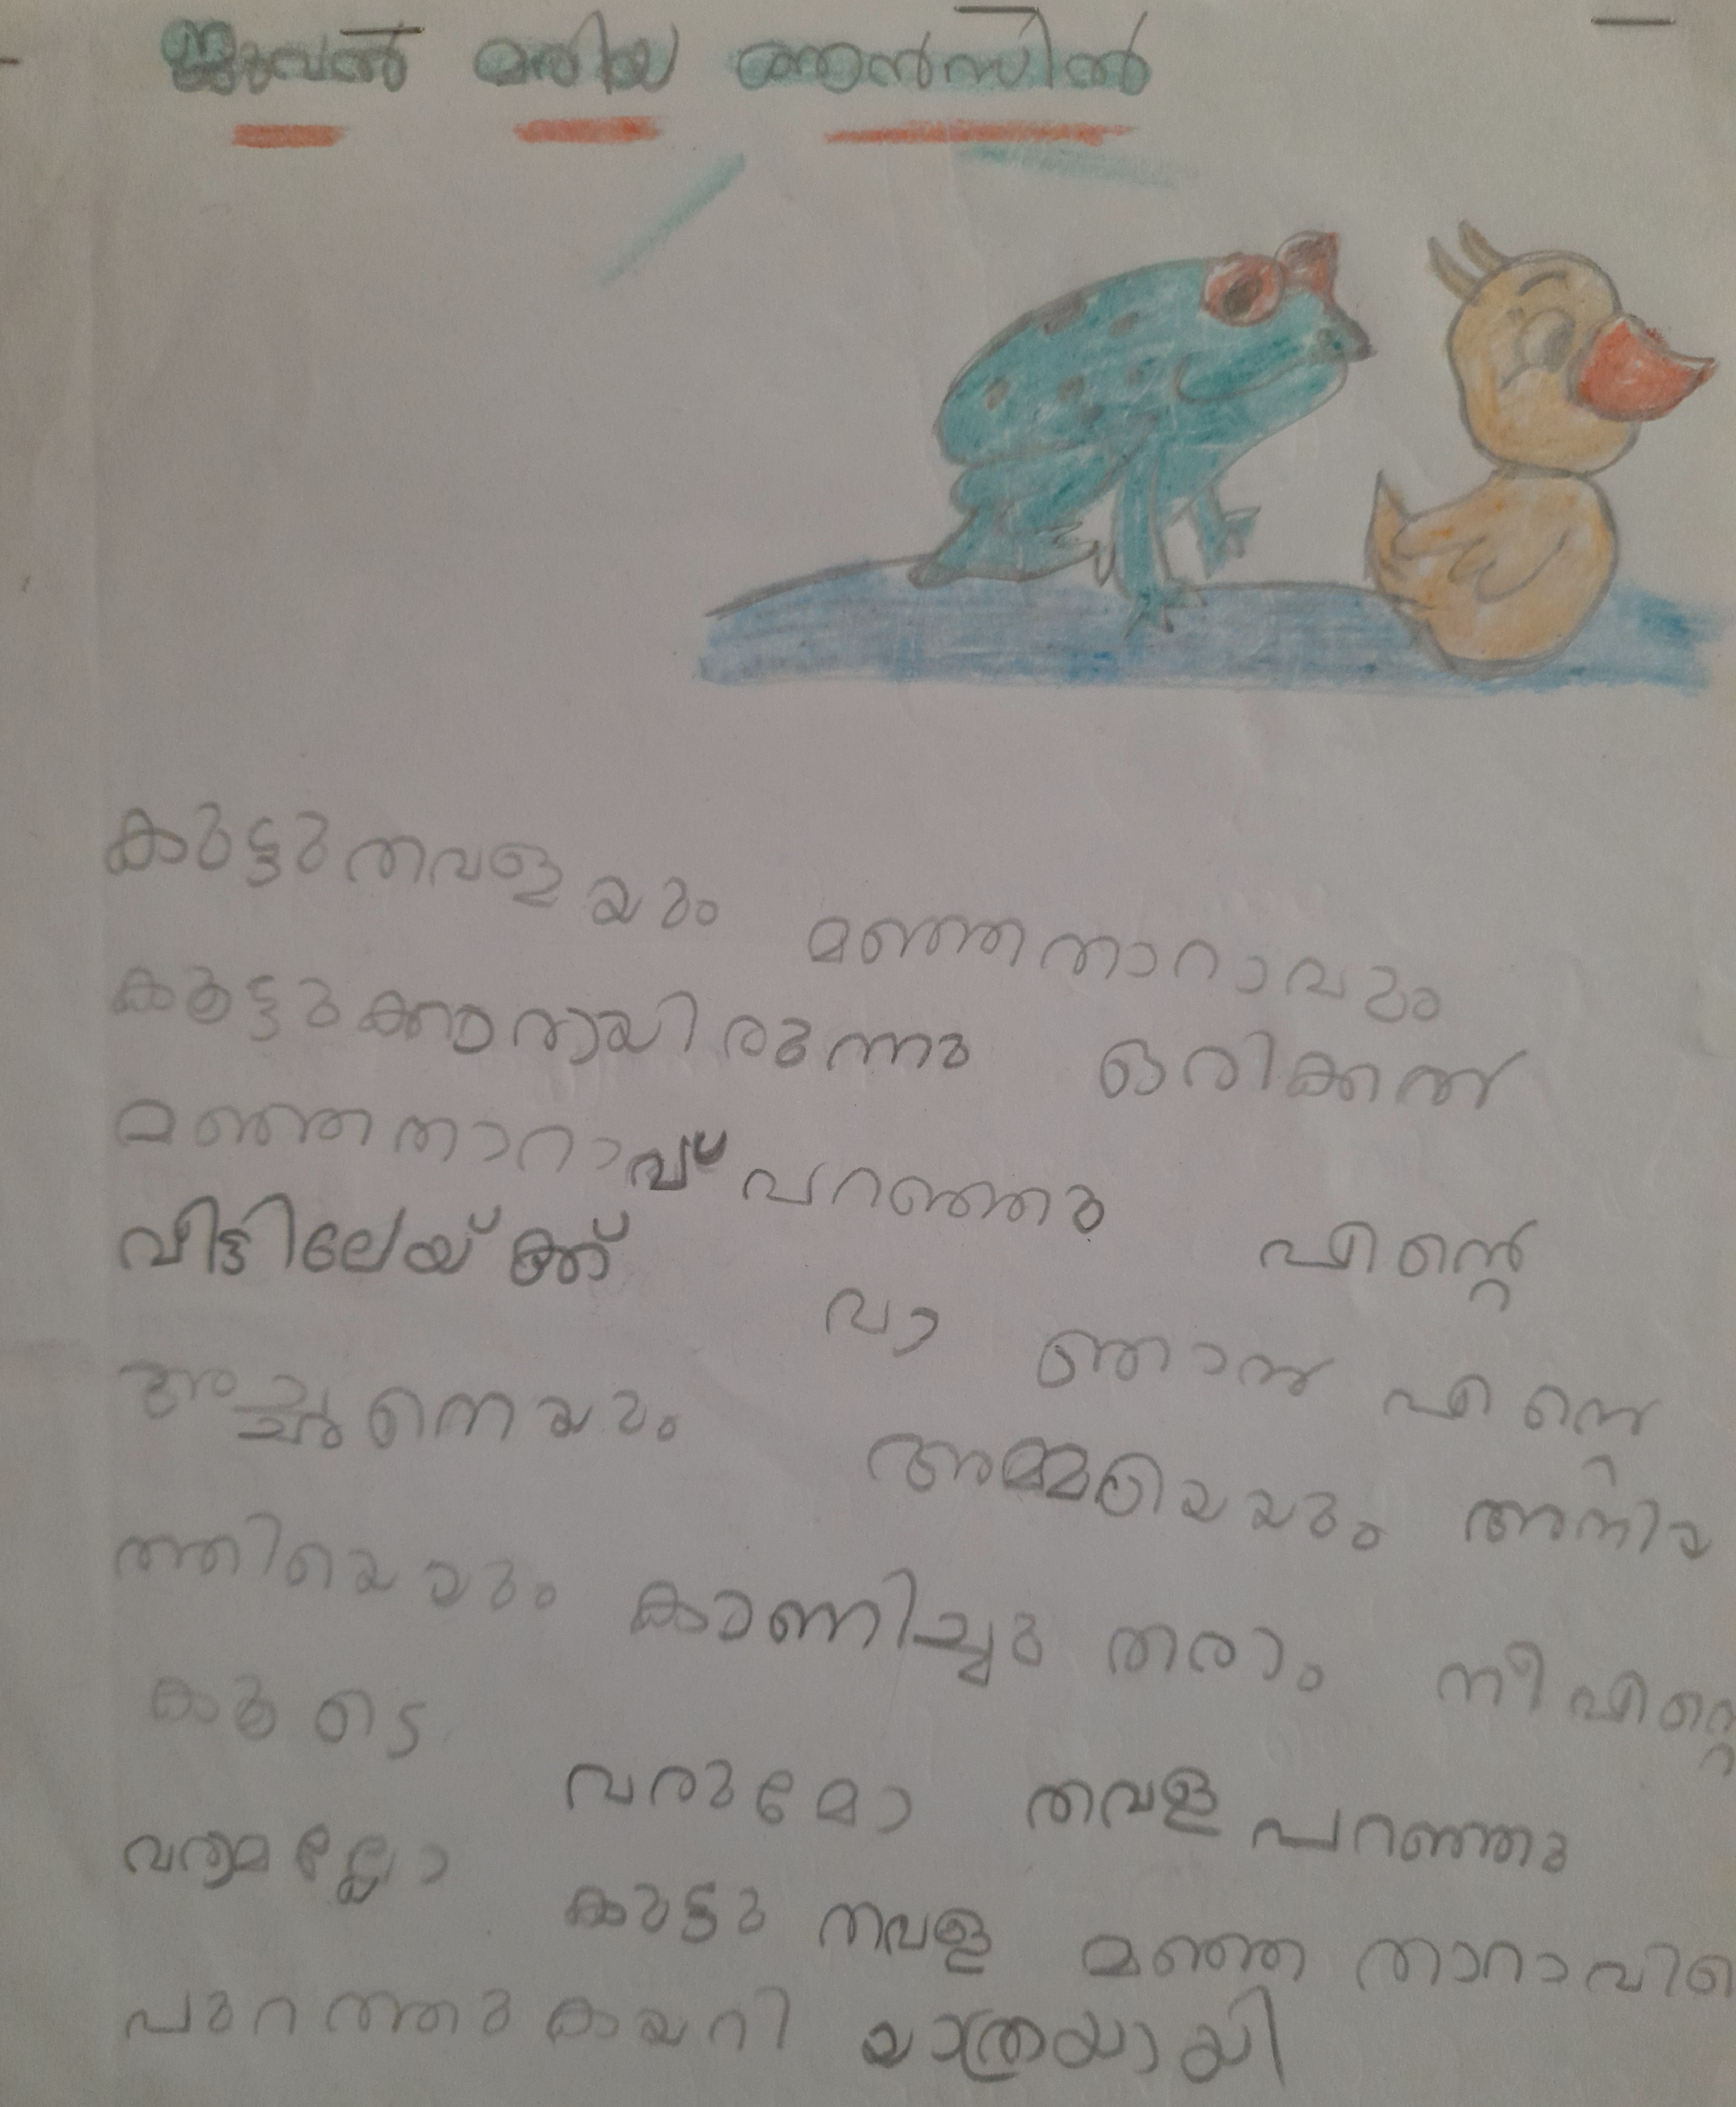 ജുവൽ മരിയ ആൻസിൽ
കുട്ടുതവളയും മഞ്ഞതാറാവും
കൂട്ടുക്കാരായിരുന്നു ഒരിക്കൽ
മഞ്ഞതാറാവ് പറഞ്ഞു എന്റെ
വീട്ടിലേയ്ക്ക് വാ ഞാൻ എന്റെ
അച്ഛനെയും അമ്മയെയും അനിയ
ത്തിയെയും കാണിച്ചു തരാം നീ എന്റെ
കൂടെ വരുമോ തവള പറഞ്ഞു
വരുമല്ലോ കുട്ടു തവള മഞ്ഞ താറാവി
പുറത്തു കയറി യാത്രയായി